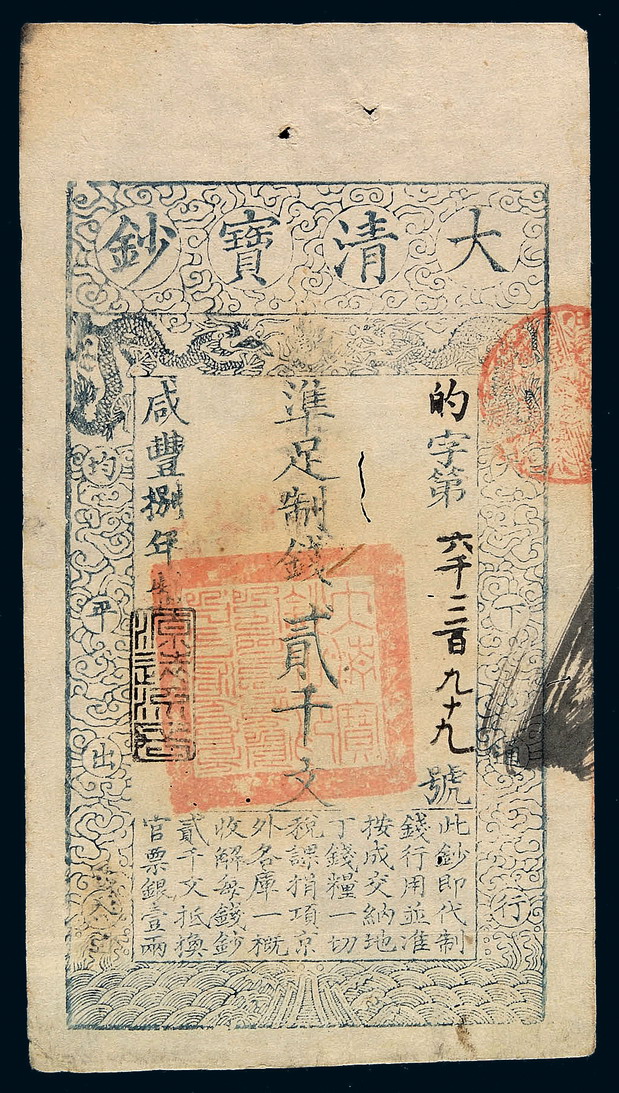 大清寶鈔
下通行
的字第六千二百九十九號
準足制錢貳千文
咸豐捌年
均平出
此鈔即代制
錢行用並准
按成交納地
丁錢糧一切
稅課捐項京
外各庫一概
收解每錢鈔
貳千文抵換
官票銀壹兩